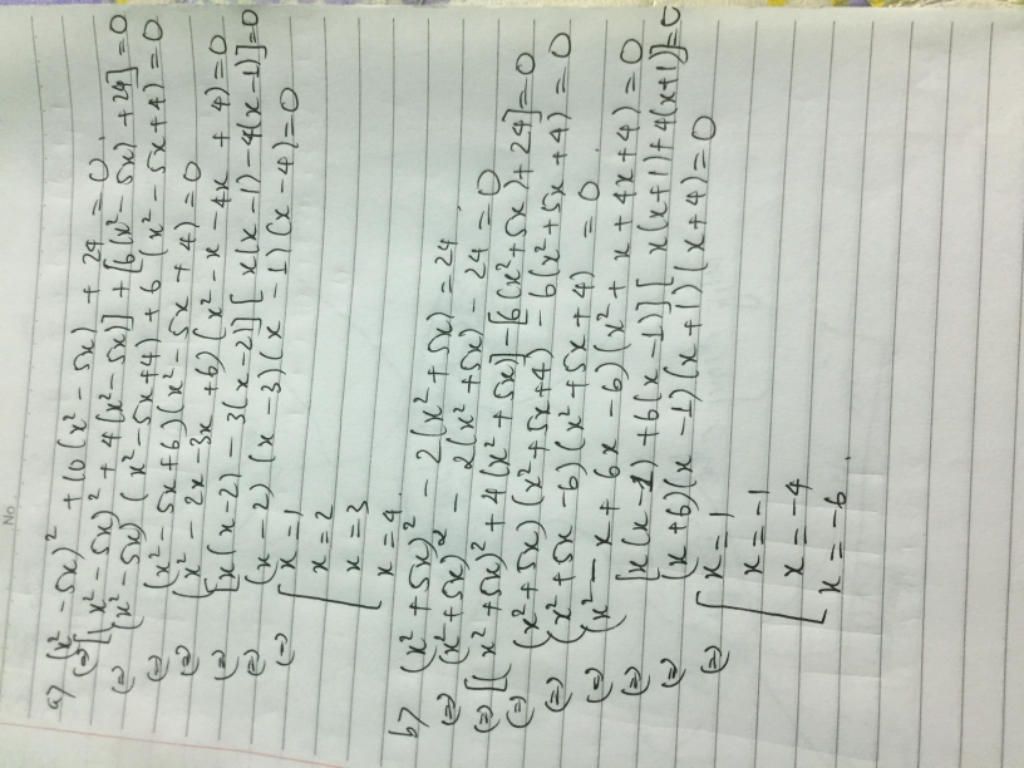 No
a) (x² - 5x)² + 10(x² - 5x) + 24 = 0
(=) [(x² - 5x)² + 4(x² - 5x)] + [6(x² - 5x) + 24] = 0
(=) (x² - 5x) (x² - 5x + 4) + 6 (x² - 5x + 4) = 0
(=) (x² - 5x + 6)(x² - 5x + 4) = 0
(=) (x² - 2x - 3x + 6)(x² - x - 4x + 4) = 0
(=) [x(x-2) - 3(x-2)] [x(x-1) - 4(x-1)] = 0
(=) (x-2)(x-3)(x-1)(x-4) = 0
(=) [ x = 1
x = 2
x = 3
x = 4
b) (x² + 5x)² - 2(x² + 5x) = 24
(=) (x² + 5x)² - 2(x² + 5x) - 24 = 0
(=) [(x² + 5x)² + 4(x² + 5x)] - [6(x² + 5x) + 24] = 0
(=) (x² + 5x)(x² + 5x + 4) - 6(x² + 5x + 4) = 0
(=) (x² + 5x - 6)(x² + 5x + 4) = 0
(=) (x² - x + 6x - 6)(x² + x + 4x + 4) = 0
(=) [x(x-1) + 6(x-1)] [x(x+1) + 4(x+1)] = 0
(=) (x+6)(x-1)(x+1)(x+4) = 0
(=) [ x = 1
x = -1
x = -4
x = -6